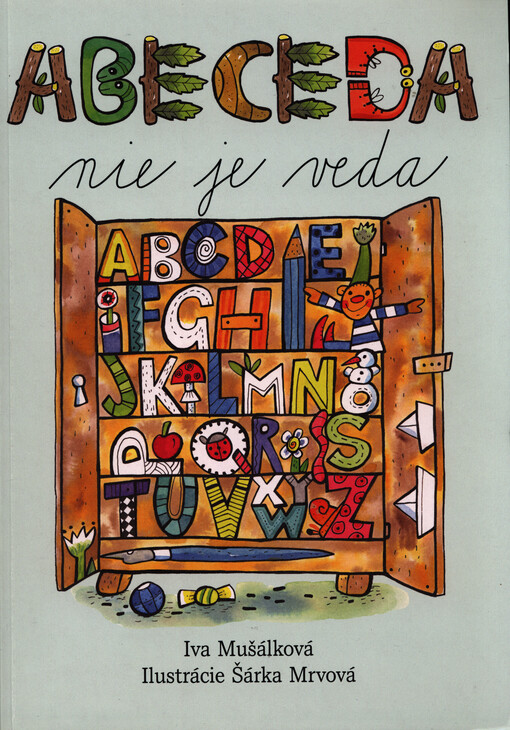 ABECEDA
nie je veda
ABCDE
FGHI
JKLMNO
PQRS
TUVXWZ
Iva Mušálková
Ilustrácie Šárka Mrvová